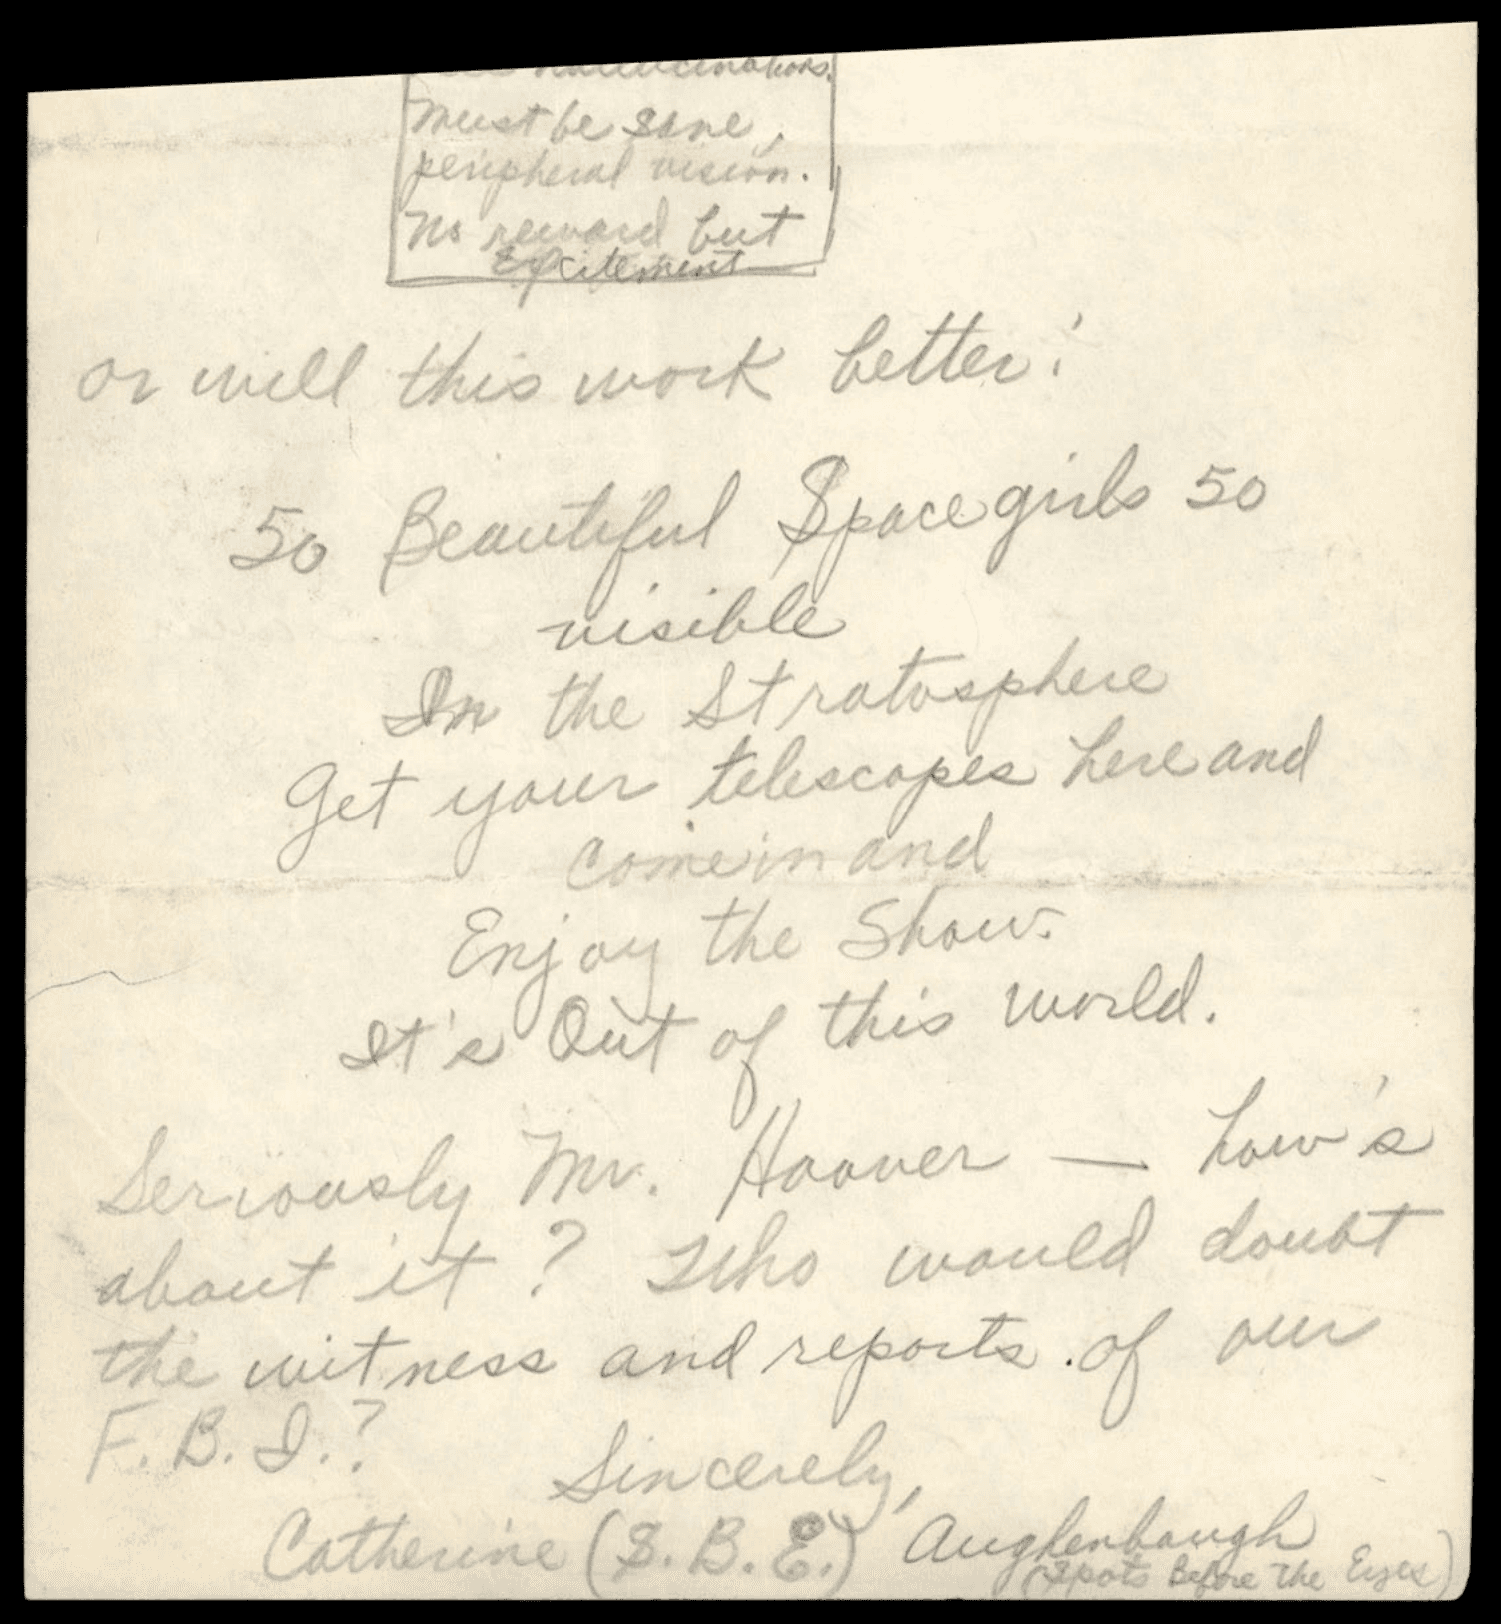 hallucinations.
must be sane,
peripheral vision.
No reward but
Excitement
or will this work better:
50 Beautiful Spacegirls 50
visible
In the Stratosphere
Get your telescopes here and
come in and
Enjoy the Show.
It's Out of this world.
Seriously Mr. Hoover — how's
about it? Who would doubt
the witness and reports of our
F. B. I.?
Sincerely,
Catherine (S. B. E.) Aughenbaugh
(Spots Before The Eyes)